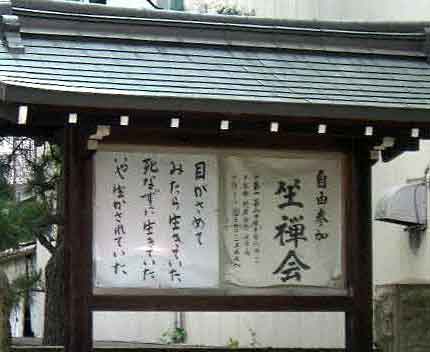 自由参加
坐禅会
目がさめて
みたら生きていた
死なずに生きていた
いや 生かされていた